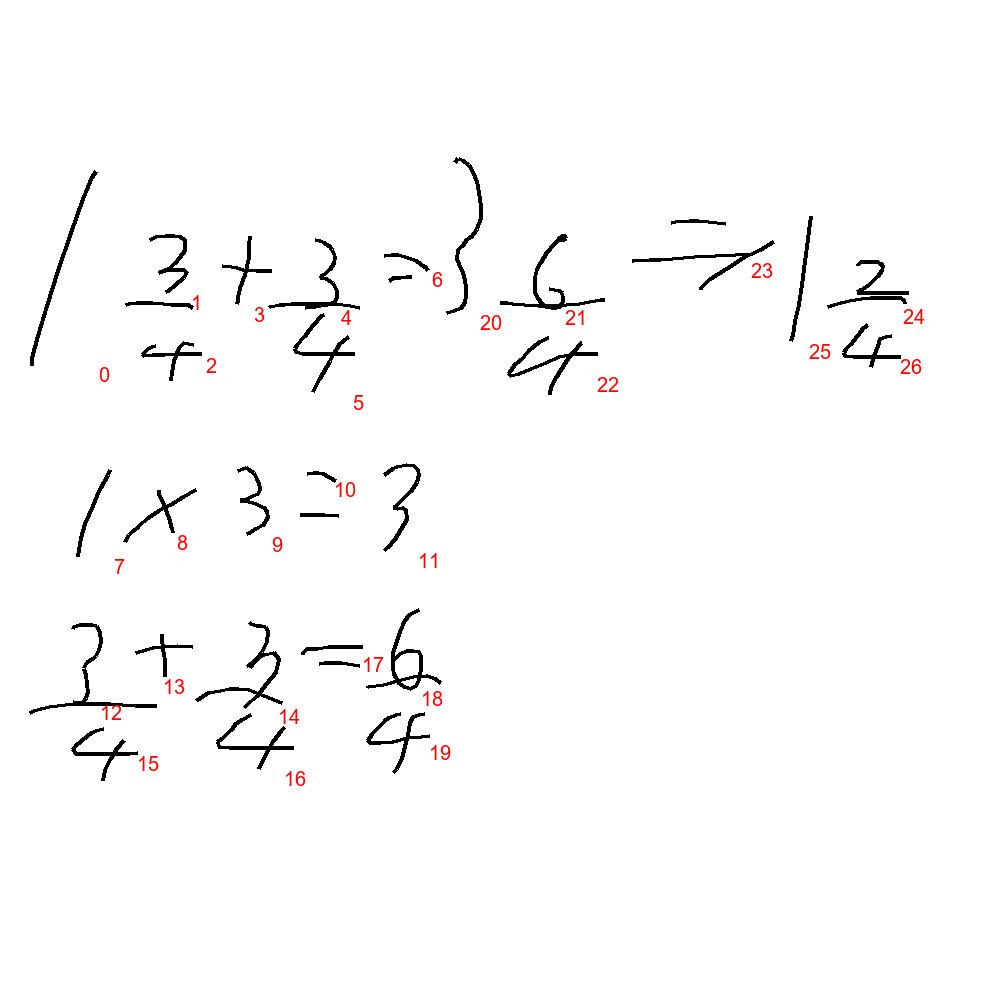 1 3/4 + 3/4 = 3 6/4 ⇒ 1 2/4
0 1 2 3 4 5 6 20 21 22 23 25 24 26
1 × 3 = 3
7 8 9 10 11
3/4 + 3/4 = 6/4
12 15 13 14 16 17 18 19